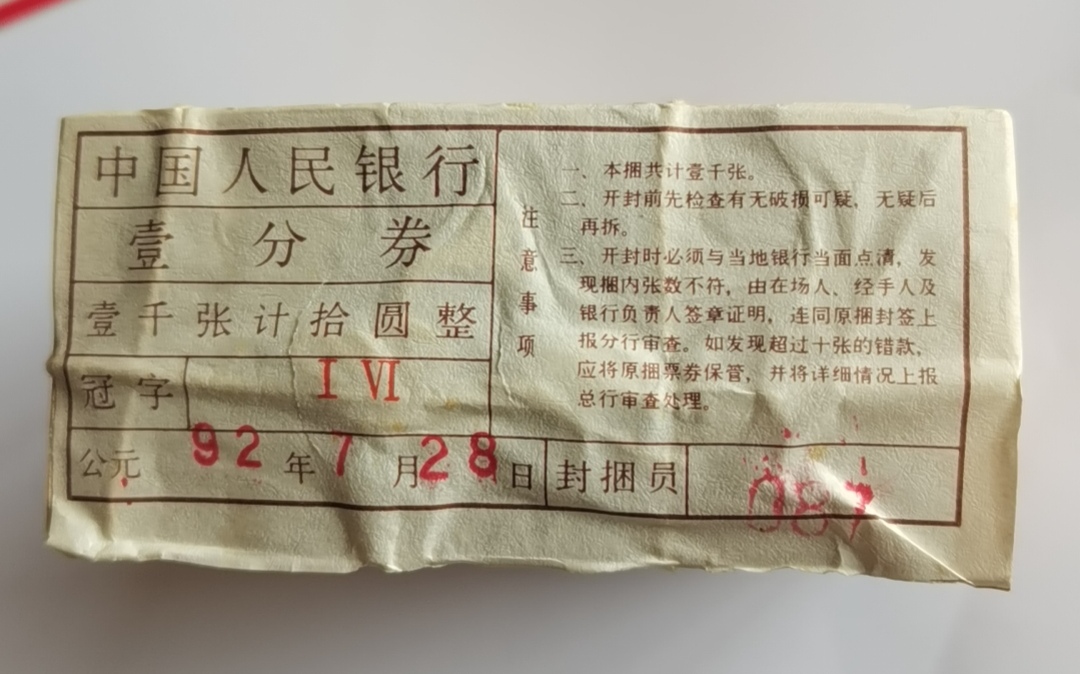 中国人民银行
壹分券
壹千张计拾圆整
冠字 I VI
公元 92 年 7 月 28 日 封捆员 087
注意事项
一、本捆共计壹千张。
二、开封前先检查有无破损可疑，无疑后
再拆。
三、开封时必须与当地银行当面点清，发
现捆内张数不符，由在场人、经手人及
银行负责人签章证明，连同原捆封签上
报分行审查。如发现超过十张的错款，
应将原捆票券保管，并将详细情况上报
总行审查处理。